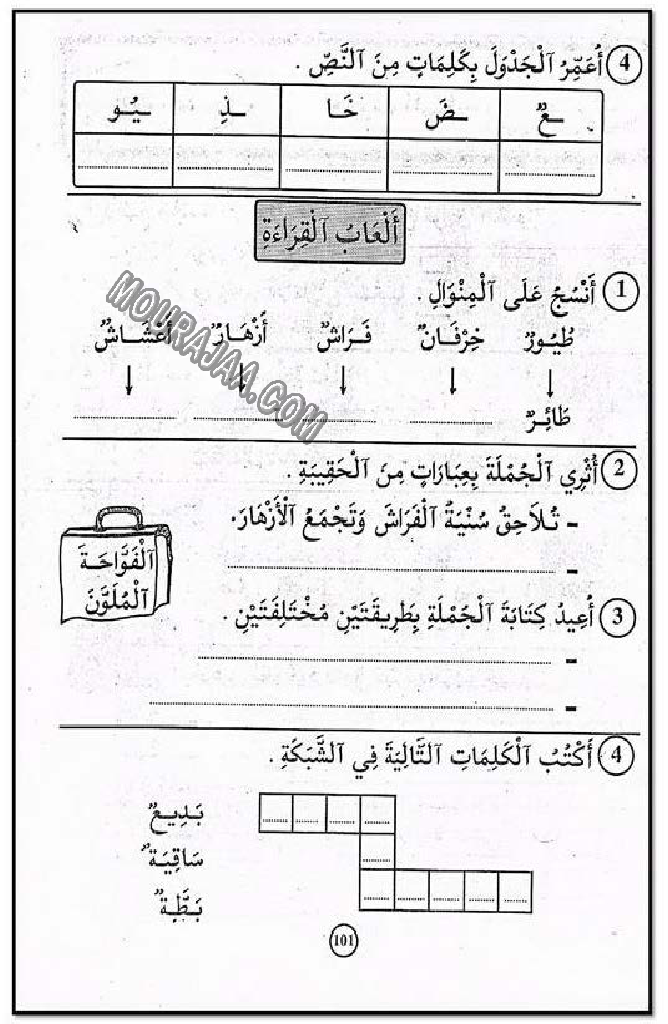 4 أُعَمِّرُ ٱلْجَدْوَلَ بِكَلِمَاتٍ مِنَ ٱلنَّصِّ .
ـعٌ ـضَ خَا ـذِ ـيُو
أَلْعَابُ ٱلْقِرَاءَةِ
1 أَنْسُجُ عَلَى ٱلْمِنْوَالِ .
طُيُورٌ خِرْفَانٌ فَرَاشٌ أَزْهَارٌ أَعْشَاشٌ
طَائِرٌ
MOURAJAA.COM
2 أُثْرِي ٱلْجُمْلَةَ بِعِبَارَاتٍ مِنَ ٱلْحَقِيبَةِ .
- تُلَاحِقُ سُنْيَةُ ٱلْفَرَاشَ وَتَجْمَعُ ٱلْأَزْهَارَ.
ٱلْفَوَّاحَةَ
ٱلْمُلَوَّنَ
3 أُعِيدُ كِتَابَةَ ٱلْجُمْلَةِ بِطَرِيقَتَيْنِ مُخْتَلِفَتَيْنِ .
4 أَكْتُبُ ٱلْكَلِمَاتِ ٱلتَّالِيَةَ فِي ٱلشَّبَكَةِ .
بَدِيعٌ
سَاقِيَةٌ
بَطَّةٌ
101